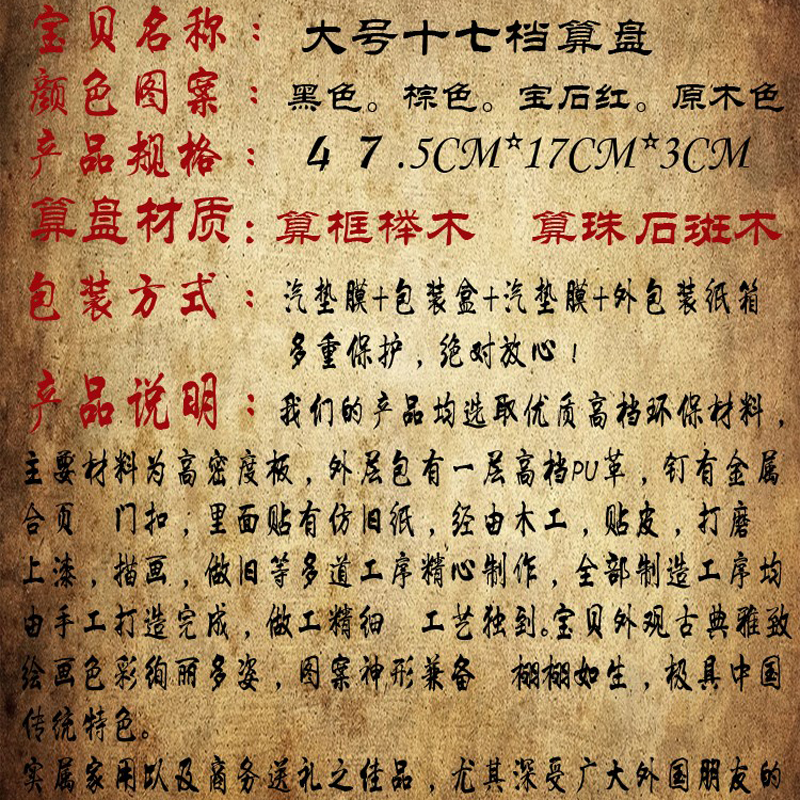 宝贝名称：大号十七档算盘
颜色图案：黑色。棕色。宝石红。原木色
产品规格：47.5CM*17CM*3CM
算盘材质：算框榉木 算珠石斑木
包装方式：汽垫膜+包装盒+汽垫膜+外包装纸箱
多重保护，绝对放心！
产品说明：我们的产品均选取优质高档环保材料，
主要材料为高密度板，外层包有一层高档PU革，钉有金属
合页 门扣，里面贴有仿旧纸，经由木工，贴皮，打磨
上漆，描画，做旧等多道工序精心制作，全部制造工序均
由手工打造完成，做工精细 工艺独到。宝贝外观古典雅致
绘画色彩绚丽多姿，图案神形兼备 栩栩如生，极具中国
传统特色。
实属家用以及商务送礼之佳品，尤其深受广大外国朋友的